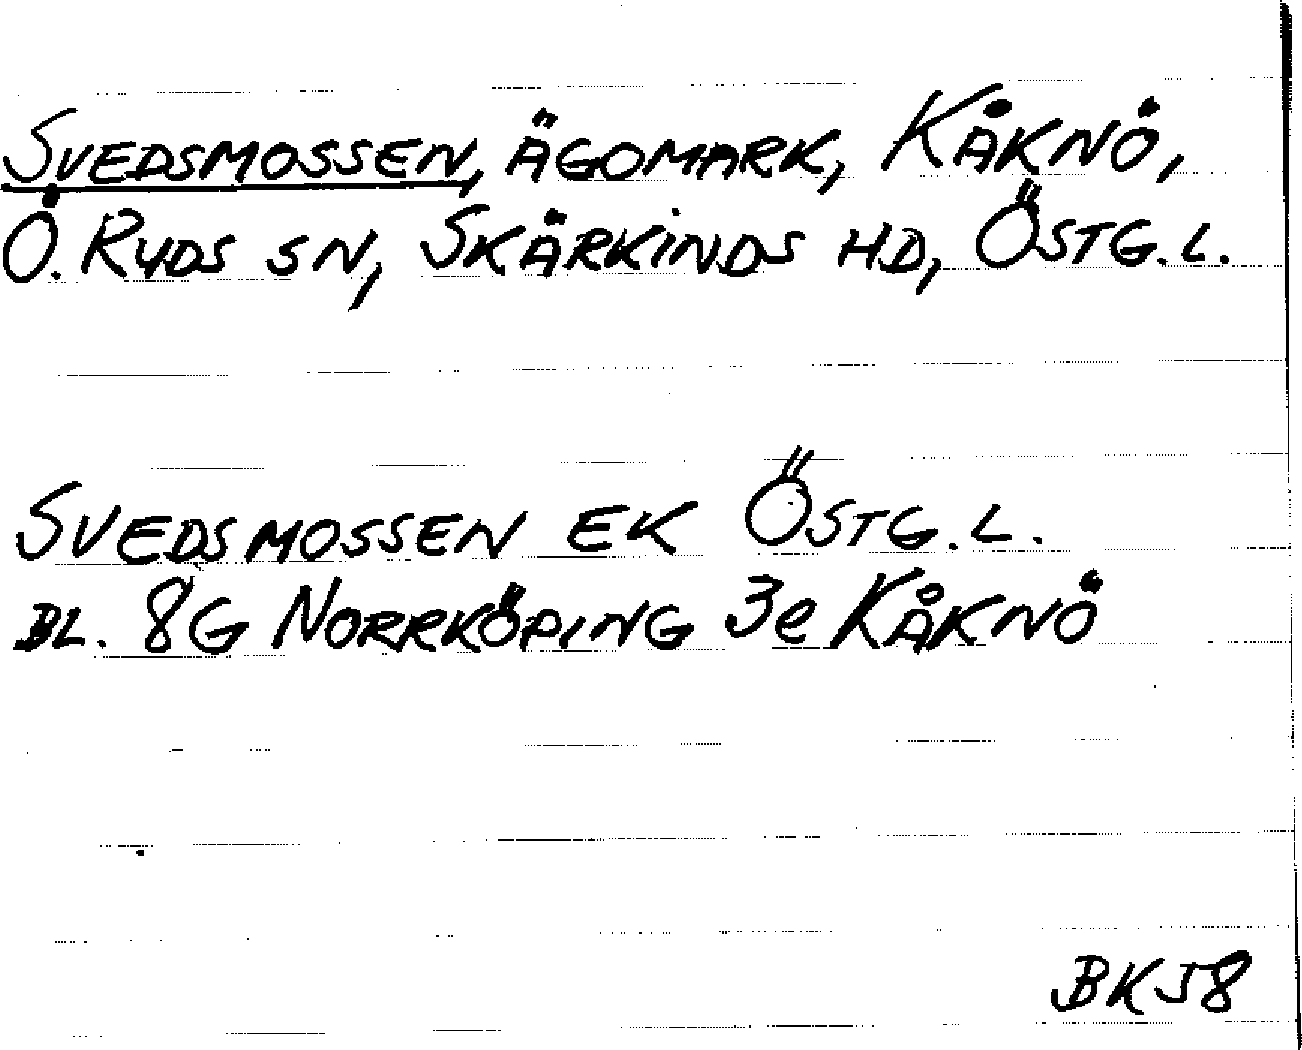 SVEDSMOSSEN, ÄGOMARK, KÅKNÖ,
Ö. RYDS SN, SKÄRKINDS HD, ÖSTG. L.
SVEDSMOSSEN EK ÖSTG. L.
BL. 8G NORRKÖPING 3e KÅKNÖ
BK J8